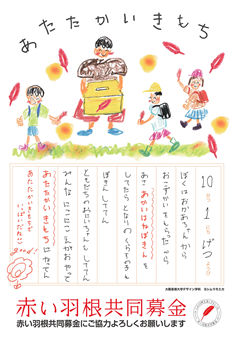 あたたかいきもち
10がつ1にちげつようび
ぼくはおかあちゃんから
おこずかいをもらったから
あさあかいはねぼきんを
してたらとなりのくらすのきみも
ぼきんしてて
ともだちのおにいちゃんもしてて
みんなにこにこえがおやって
あたたかいきもちになってん
あたたかいきもちで
いっぱいだね
good!
大阪芸術大学デザイン学科
赤い羽根共同募金
赤い羽根共同募金にご協力よろしくお願いします